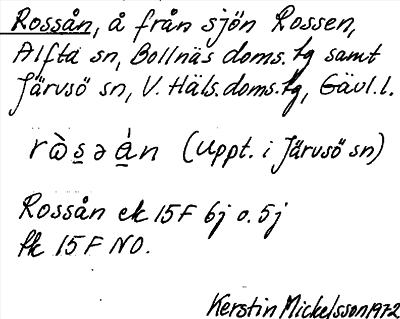 Rossån, å från sjön Rossen,
Alfta sn, Bollnäs doms.tg samt
Järvsö sn, V. Häls.doms.tg, Gävl.l.
r s ə n (Uppt. i Järvsö sn)
Rossån ek 15F 6j o. 5j
fk 15 F NO.
Kerstin Mickelsson 1972